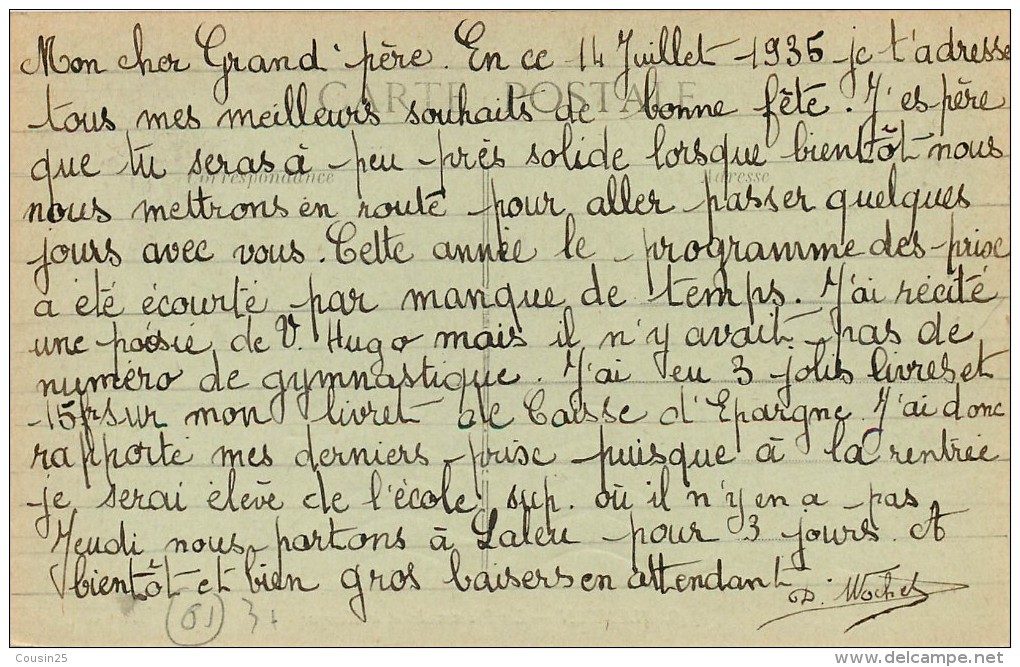 Mon cher Grand'père. En ce 14 Juillet 1935 je t'adresse
CARTE POSTALE
tous mes meilleurs souhaits de bonne fête. J'espère
que tu seras à peu près solide lorsque bientôt nous
Correspondance Adresse
nous mettrons en route pour aller passer quelques
jours avec vous. Cette année le programme des prix
a été écourté par manque de temps. J'ai récité
une poésie de V. Hugo mais il n'y avait pas de
numéro de gymnastique. J'ai eu 3 jolis livres et
15f sur mon livret de Caisse d'Epargne. J'ai donc
rapporté mes derniers prix puisque à la rentrée
je serai élève de l'école sup. où il n'y en a pas
Jeudi nous partons à Laleu pour 3 jours. A
bientôt et bien gros baisers en attendant
D. Wochet
61 3+
Cousin25
http://www.delcampe.net